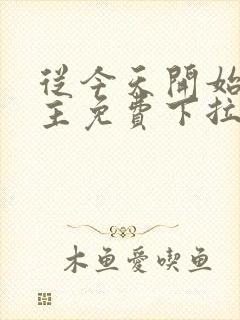 從今天開始
主免費下拉
木鱼愛喫鱼